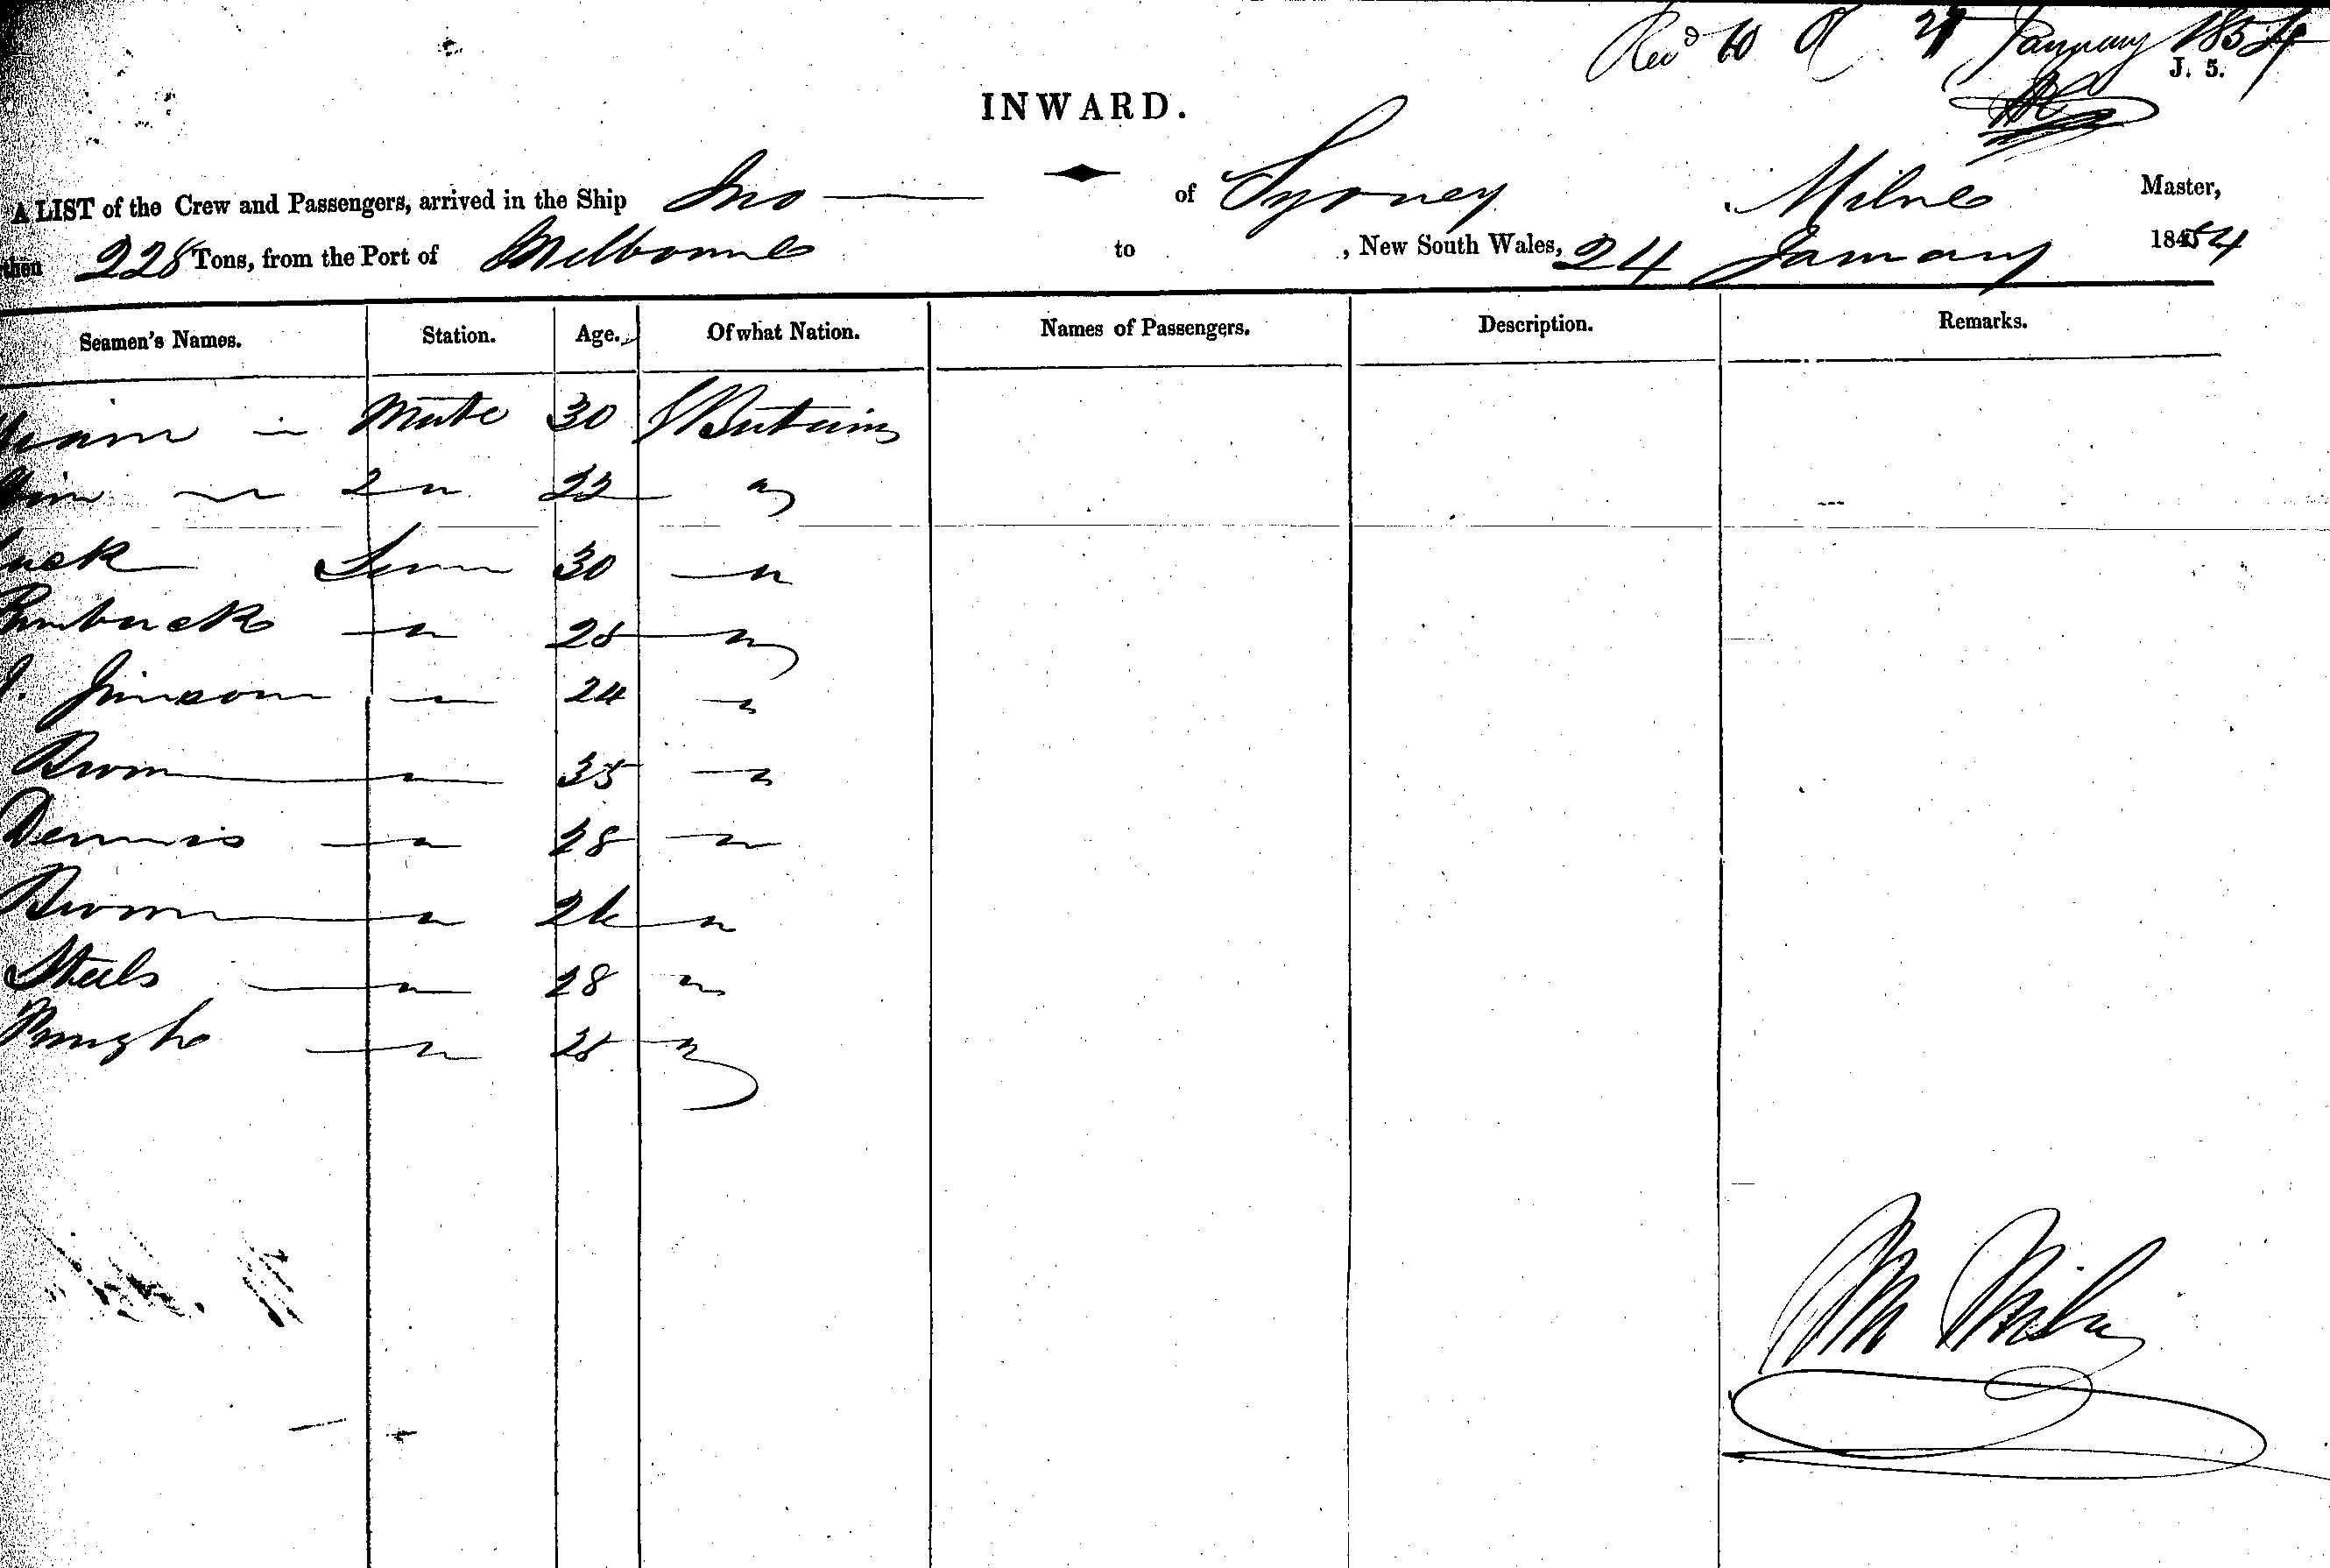 Recd 10 24 January 1854
J. 5.
INWARD.
A LIST of the Crew and Passengers, arrived in the Ship Ino of Sydney Milne Master,
then 228 Tons, from the Port of Melbourne to , New South Wales, 24 January 1854
Seamen's Names. Station. Age. Of what Nation. Names of Passengers. Description. Remarks.
Mate 30 Britain
2 " 22 "
30 "
" 28 "
Jimson " 24 "
Brown " 35 "
Dennis " 28 "
Brown " 26 "
Steels " 28 "
" 28 "
Milne